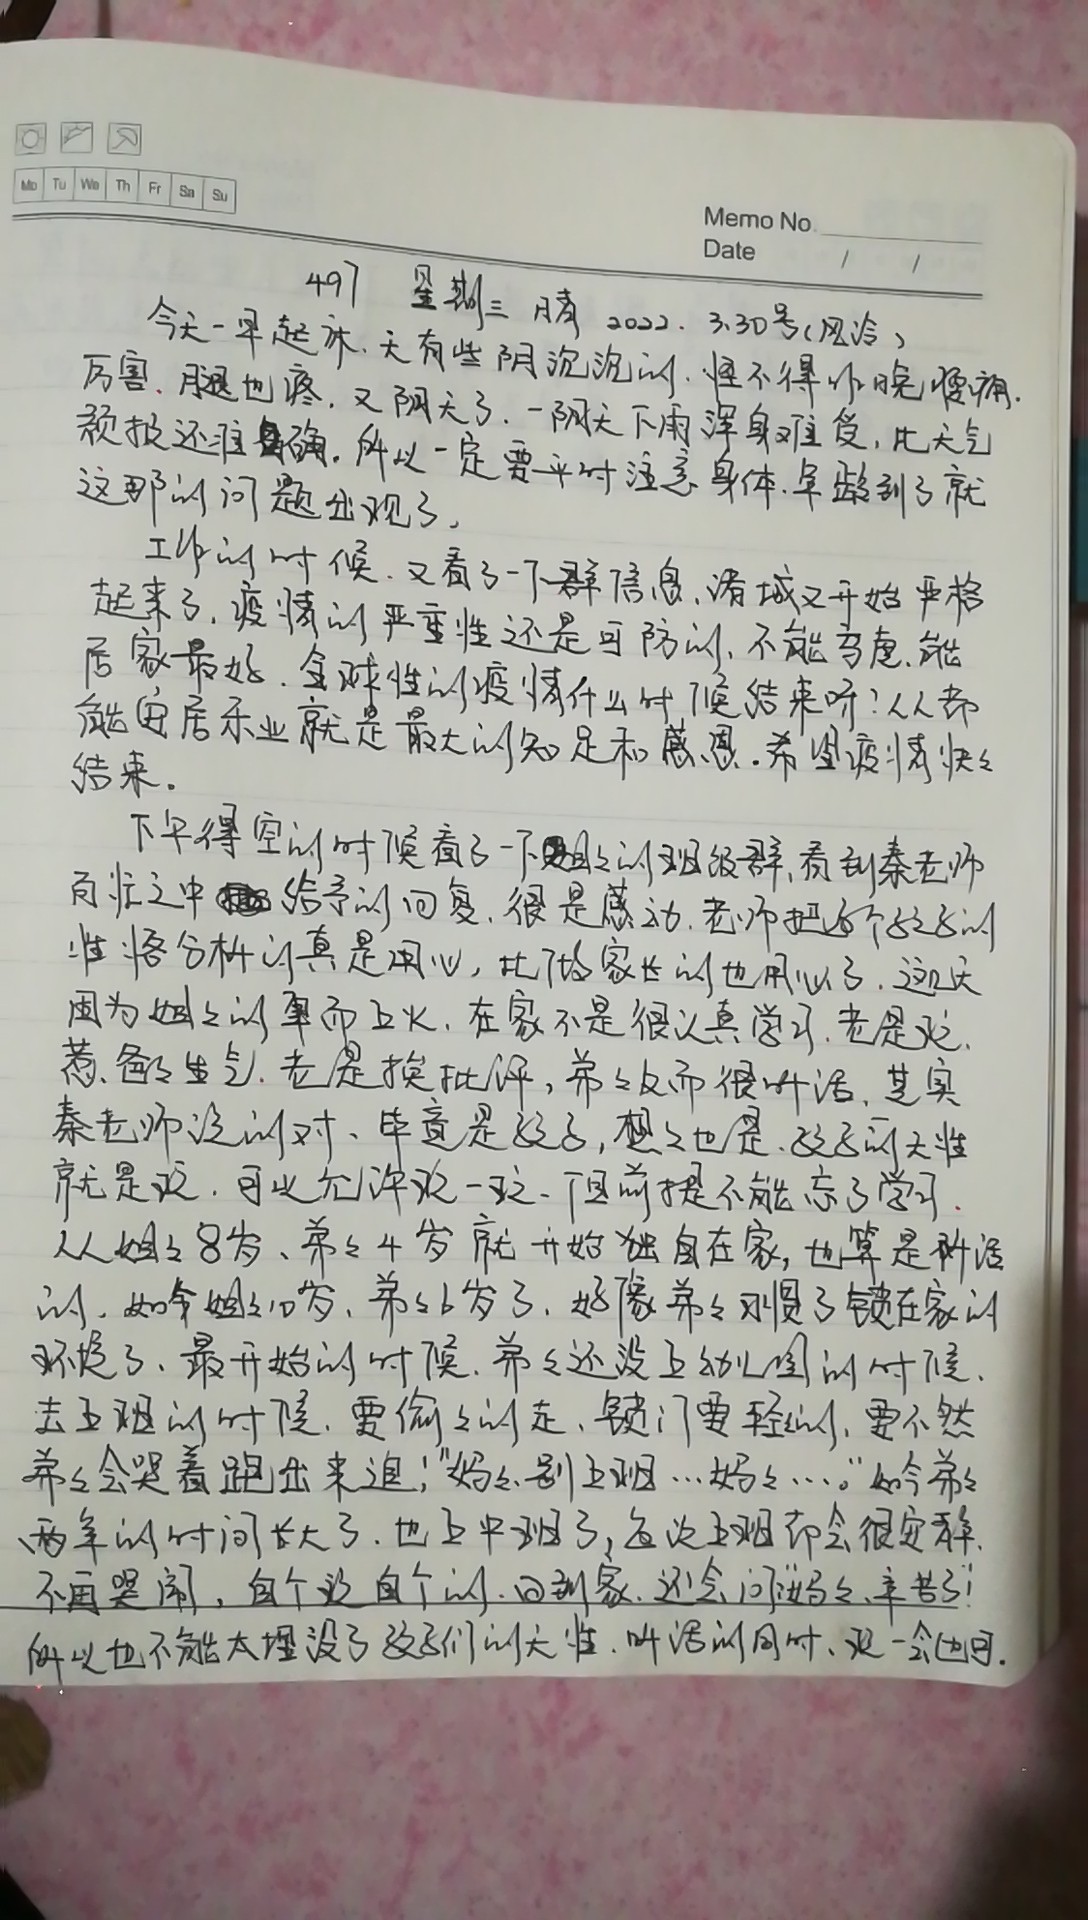 Mo Tu We Th Fr Sa Su
Memo No.
Date / /
497 星期三 晴 2022. 3.30号(风冷)
今天一早起床、天有些阴沉沉的、怪不得昨晚腰痛.
厉害、腿也疼、又阴天了、一阴天下雨浑身难受,比天气
预报还准确。所以一定要平时注意身体、年龄到了就
这那的问题出现了,
工作的时候、又看了一下群信息,诸城又开始严格
起来了,疫情的严重性还是可防的、不能马虎、能
居家最好、全球性的疫情什么时候结束呀?人人都
能安居乐业就是最大的知足和感恩.希望疫情快々
结束。
下午得空的时候看了一下姐々的班级群,看到秦老师
百忙之中给予的回复,很是感动,老师把每个孩子的
性格分析的真是用心,比做家长的也用心了,这几天
因为姐々的事而上火、在家不是很认真学习、老是玩、
惹爸々生气、老是挨批评,弟々反而很听话、其实
秦老师说的对、毕竟是孩子,想々也是、孩子的天性
就是玩,可以允许玩一玩、但前提不能忘了学习.
从姐々8岁、弟々4岁就开始独自在家,也算是听话
的、如今姐々10岁、弟々6岁了、好像弟々习惯了锁在家的
环境了、最开始的时候、弟々还没上幼儿园的时候、
去上班的时候、要偷々的走、锁门要轻々的、要不然
弟々会哭着跑出来追!“妈々、别上班…妈々…。”如今弟々
两年的时间长大了、也上中班了,每次上班都会很安静、
不再哭闹,自个玩自个的、回到家、还会问“妈々、辛苦了!
所以也不能太埋没了孩子们的天性、听话的同时、玩一会也可.